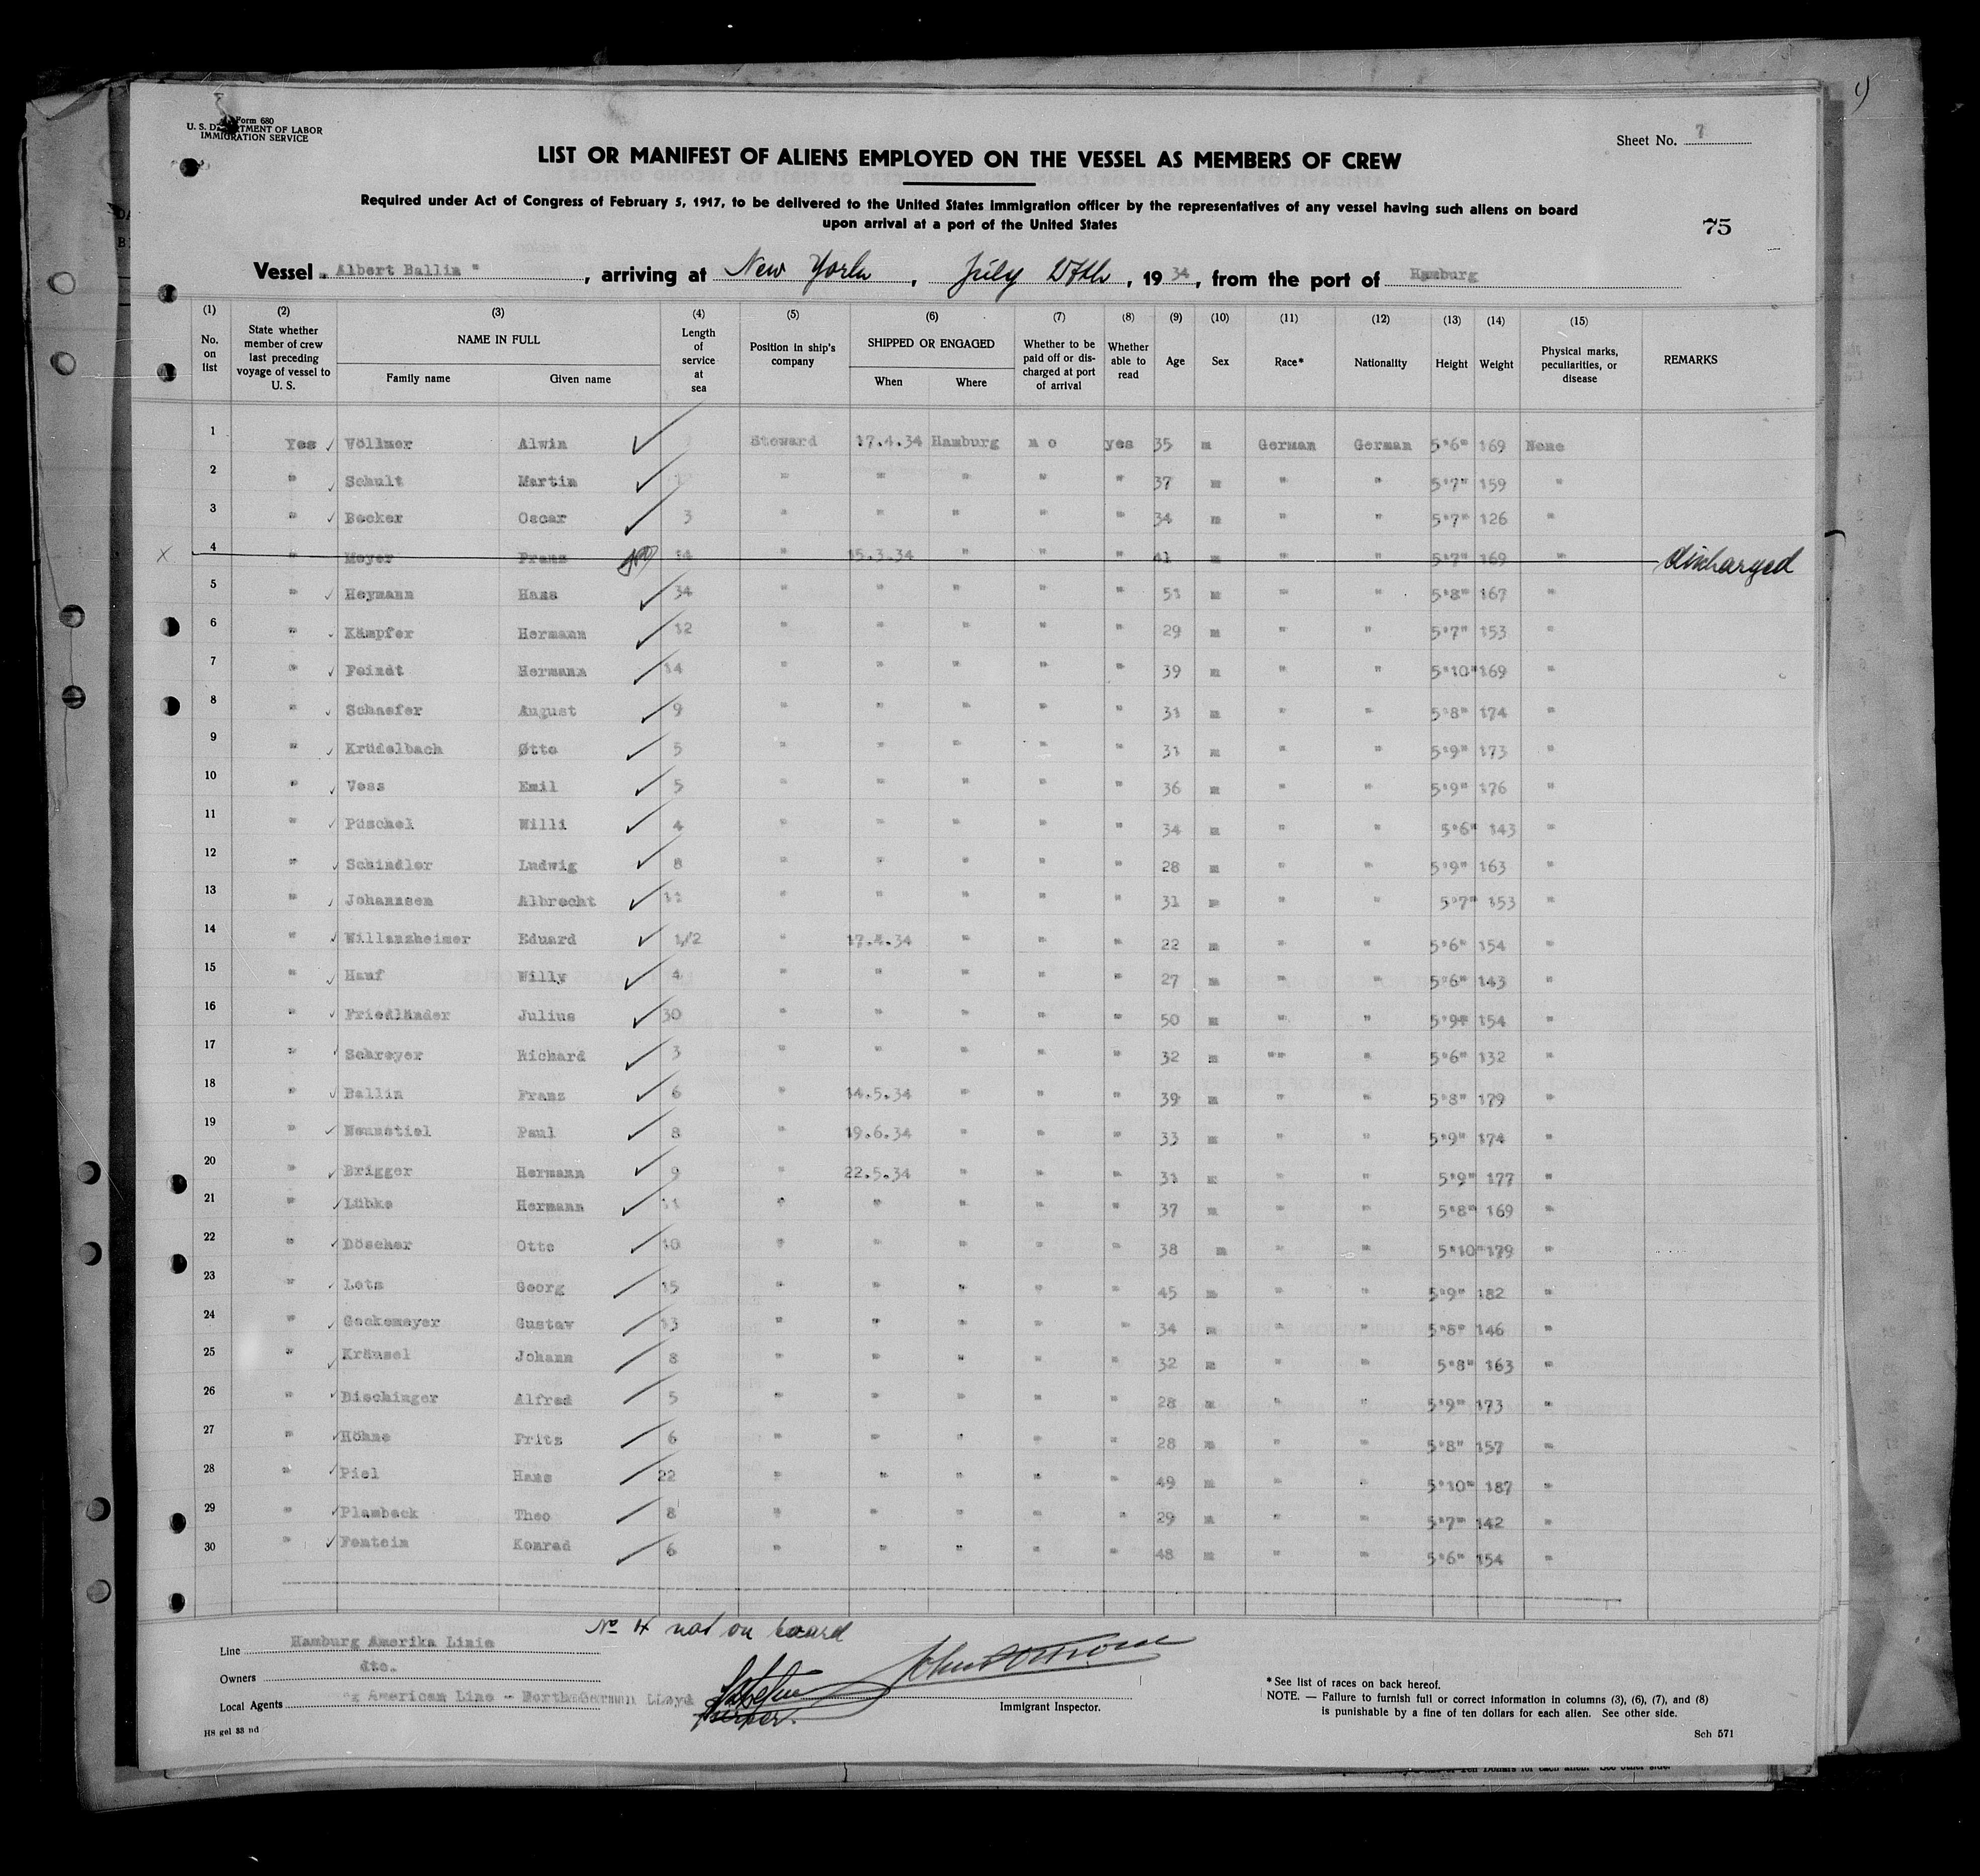 Form 680
U. S. DEPARTMENT OF LABOR
IMMIGRATION SERVICE
Sheet No. 7
LIST OR MANIFEST OF ALIENS EMPLOYED ON THE VESSEL AS MEMBERS OF CREW
Required under Act of Congress of February 5, 1917, to be delivered to the United States immigration officer by the representatives of any vessel having such aliens on board
upon arrival at a port of the United States
75
Vessel "Albert Ballin", arriving at New York, July 27th, 1934, from the port of Hamburg
(1) (2) (3) (4) (5) (6) (7) (8) (9) (10) (11) (12) (13) (14) (15)
No. on list | State whether member of crew last preceding voyage of vessel to U. S. | NAME IN FULL Family name Given name | Length of service at sea | Position in ship's company | SHIPPED OR ENGAGED When Where | Whether to be paid off or discharged at port of arrival | Whether able to read | Age | Sex | Race* | Nationality | Height | Weight | Physical marks, peculiarities, or disease | REMARKS
1 Yes Völlmer Alwin Steward 17.4.34 Hamburg no yes 35 m German German 5'6" 169 None
2 " Schult Martin " " " " " 37 m " " 5'7" 159 "
3 " Becker Oscar 3 " " " " " 34 m " " 5'7" 126 "
4 " Meyer Franz 14 " 15.3.34 " " " 41 m " " 5'7" 169 " discharged
5 " Heymann Hans 34 " " " " " 51 m " " 5'8" 167 "
6 " Kämpfer Hermann 12 " " " " " 29 m " " 5'7" 153 "
7 " Feindt Hermann 14 " " " " " 39 m " " 5'10" 169 "
8 " Schaefer August 9 " " " " " 31 m " " 5'8" 174 "
9 " Krüdelbach Otto 5 " " " " " 31 m " " 5'9" 173 "
10 " Voss Emil 5 " " " " " 36 m " " 5'9" 176 "
11 " Püschel Willi 4 " " " " " 34 m " " 5'6" 143 "
12 " Schindler Ludwig 8 " " " " " 28 m " " 5'9" 163 "
13 " Johannsen Albrecht 11 " " " " " 31 m " " 5'7" 153 "
14 " Willanzheimer Eduard 1/2 " 17.4.34 " " " 22 m " " 5'6" 154 "
15 " Hauf Willy 4 " " " " " 27 m " " 5'6" 143 "
16 " Friedländer Julius 30 " " " " " 50 m " " 5'9" 154 "
17 " Schreyer Richard 3 " " " " " 32 m "" " 5'6" 132 "
18 " Ballin Franz 6 " 14.5.34 " " " 39 m " " 5'8" 179 "
19 " Neunstiel Paul 8 " 19.6.34 " " " 33 m " " 5'9" 174 "
20 " Brigger Hermann 9 " 22.5.34 " " " 31 m " " 5'9" 177 "
21 " Lübke Hermann 11 " " " " " 37 m " " 5'8" 169 "
22 " Döscher Otto 10 " " " " " 38 m " " 5'10" 179 "
23 " Lotz Georg 15 " " " " " 45 m " " 5'9" 182 "
24 " Geckemeyer Gustav 13 " " " " " 34 m " " 5'8" 146 "
25 " Kräusel Johann 8 " " " " " 32 m " " 5'8" 163 "
26 " Bischinger Alfred 5 " " " " " 28 m " " 5'9" 173 "
27 " Höhne Fritz 6 " " " " " 28 m " " 5'8" 157 "
28 " Piel Hans 22 " " " " " 49 m " " 5'10" 187 "
29 " Plambeck Theo 8 " " " " " 29 m " " 5'7" 142 "
30 " Fontein Konrad 6 " " " " " 48 m " " 5'6" 154 "
No 4 not on board
Line Hamburg Amerika Linie
Owners dto.
Local Agents American Line - North German Lloyd
Immigrant Inspector.
* See list of races on back hereof.
NOTE. — Failure to furnish full or correct information in columns (3), (6), (7), and (8)
is punishable by a fine of ten dollars for each alien. See other side.
H8 gel 33 nd
Sch 571